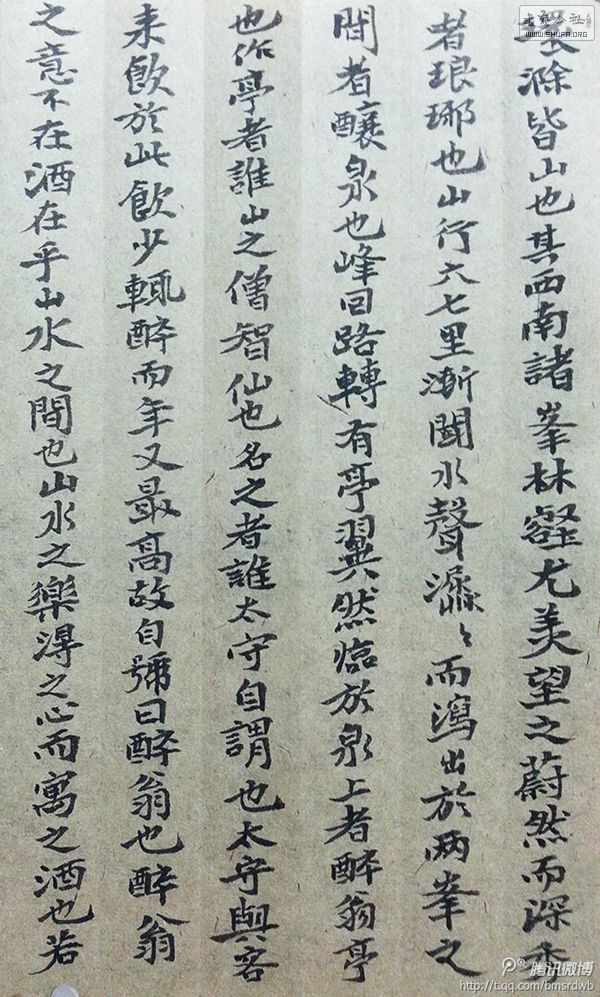 環滁皆山也其西南諸峯林壑尤美望之蔚然而深秀
者琅琊也山行六七里漸聞水聲潺々而瀉出於两峯之
間者釀泉也峰回路轉有亭翼然臨於泉上者醉翁亭
也作亭者誰山之僧智仙也名之者誰太守自謂也太守與客
来飲於此飲少輒醉而年又最高故自號曰醉翁也醉翁
之意不在酒在乎山水之間也山水之樂得之心而寓之酒也若
書藝公社
WWW.SHUFA.ORG
腾讯微博
http://t.qq.com/bmsrdwb